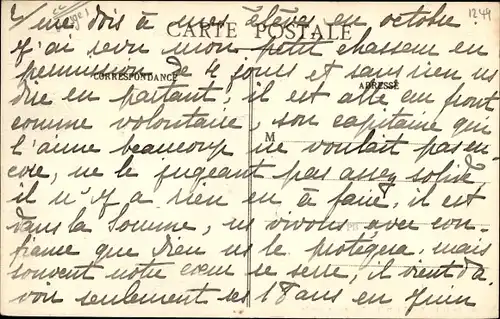 je me dois à mes élèves en octobre
CARTE POSTALE
1244
J'ai revu mon petit chasseur en
permission de 4 jours et sans rien ns
CORRESPONDANCE
ADRESSE
dire en partant, il est allé au front
comme volontaire, son capitaine qui
M
l'aime beaucoup ne voulait pas en-
core, ne le jugeant pas assez solide
il n'y a rien eu à faire, il est
dans la Somme, ns vivons avec con-
fiance que Dieu ns le protègera, mais
souvent notre cœur se serre, il vient d'a-
voir seulement ses 18 ans en Juin